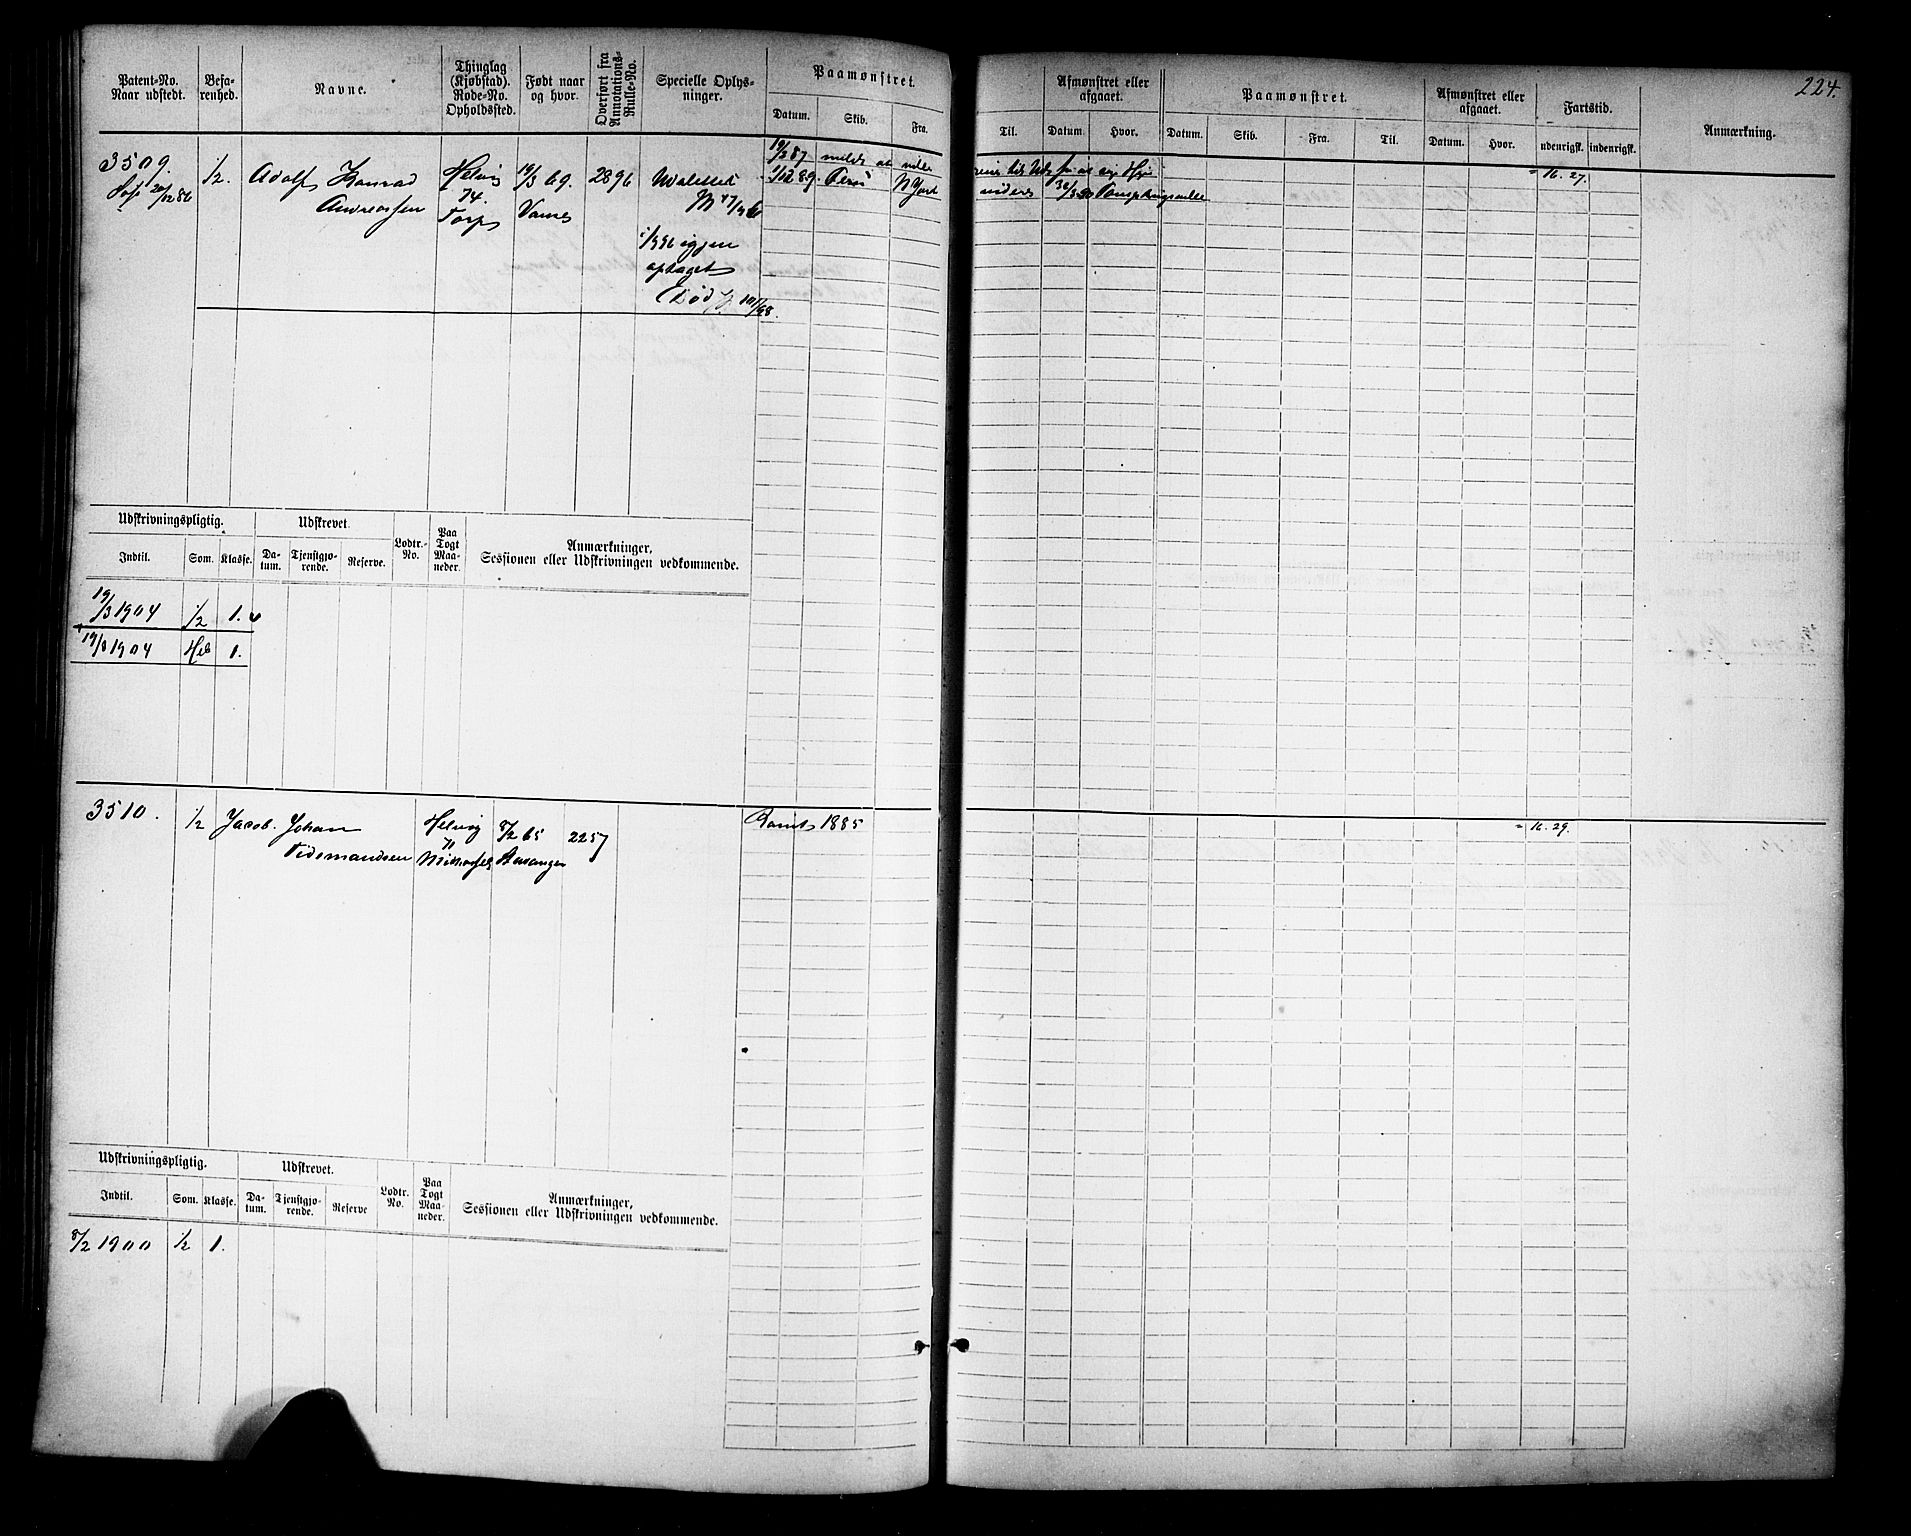 224.
Patent-No. Naar udstedt.
Befarenhed.
Navne.
Thinglag (Kjøbstad). Rode-No. Opholdssted.
Født naar og hvor.
Overført fra Annotations-Rulle-No.
Specielle Oplysninger.
Paamønstret.
Datum. Skib. Fra. Til.
Afmønstret eller afgaaet.
Datum. Hvor.
Paamønstret.
Datum. Skib. Fra. Til.
Afmønstret eller afgaaet.
Datum. Hvor.
Fartstid.
udenrigsk. indenrigsk.
Anmærkning.
3509.
20/12 86
1/2.
Adolf Konrad
Andreassen
Helvig
74.
Torp
19/3 69.
Vanse
2896
Udslettet
igjen
optaget
Død
19/2 87
1/12 89.
N York
16. 27.
Udskrivningspligtig.
Indtil. Som. Klasse.
Udskrevet.
Datum. Tjenstgjørende. Reserve.
Lodtr.-No.
Paa Togt Maaneder.
Anmærkninger, Sessionen eller Udskrivningen vedkommende.
19/3 1904 1/2 1.
19/3 1904 Hel 1.
3510.
1/2
Jacob Johan
Tidemandsen
Helvig
71
8/2 65
Stavanger
2257
Rømt 1885
16. 29.
Udskrivningspligtig.
Indtil. Som. Klasse.
Udskrevet.
Datum. Tjenstgjørende. Reserve
Lodtr. No.
Paa Togt Maaneder.
Anmærkninger, Sessionen eller Udskrivningen vedkommende.
8/2 1900 1/2 1.